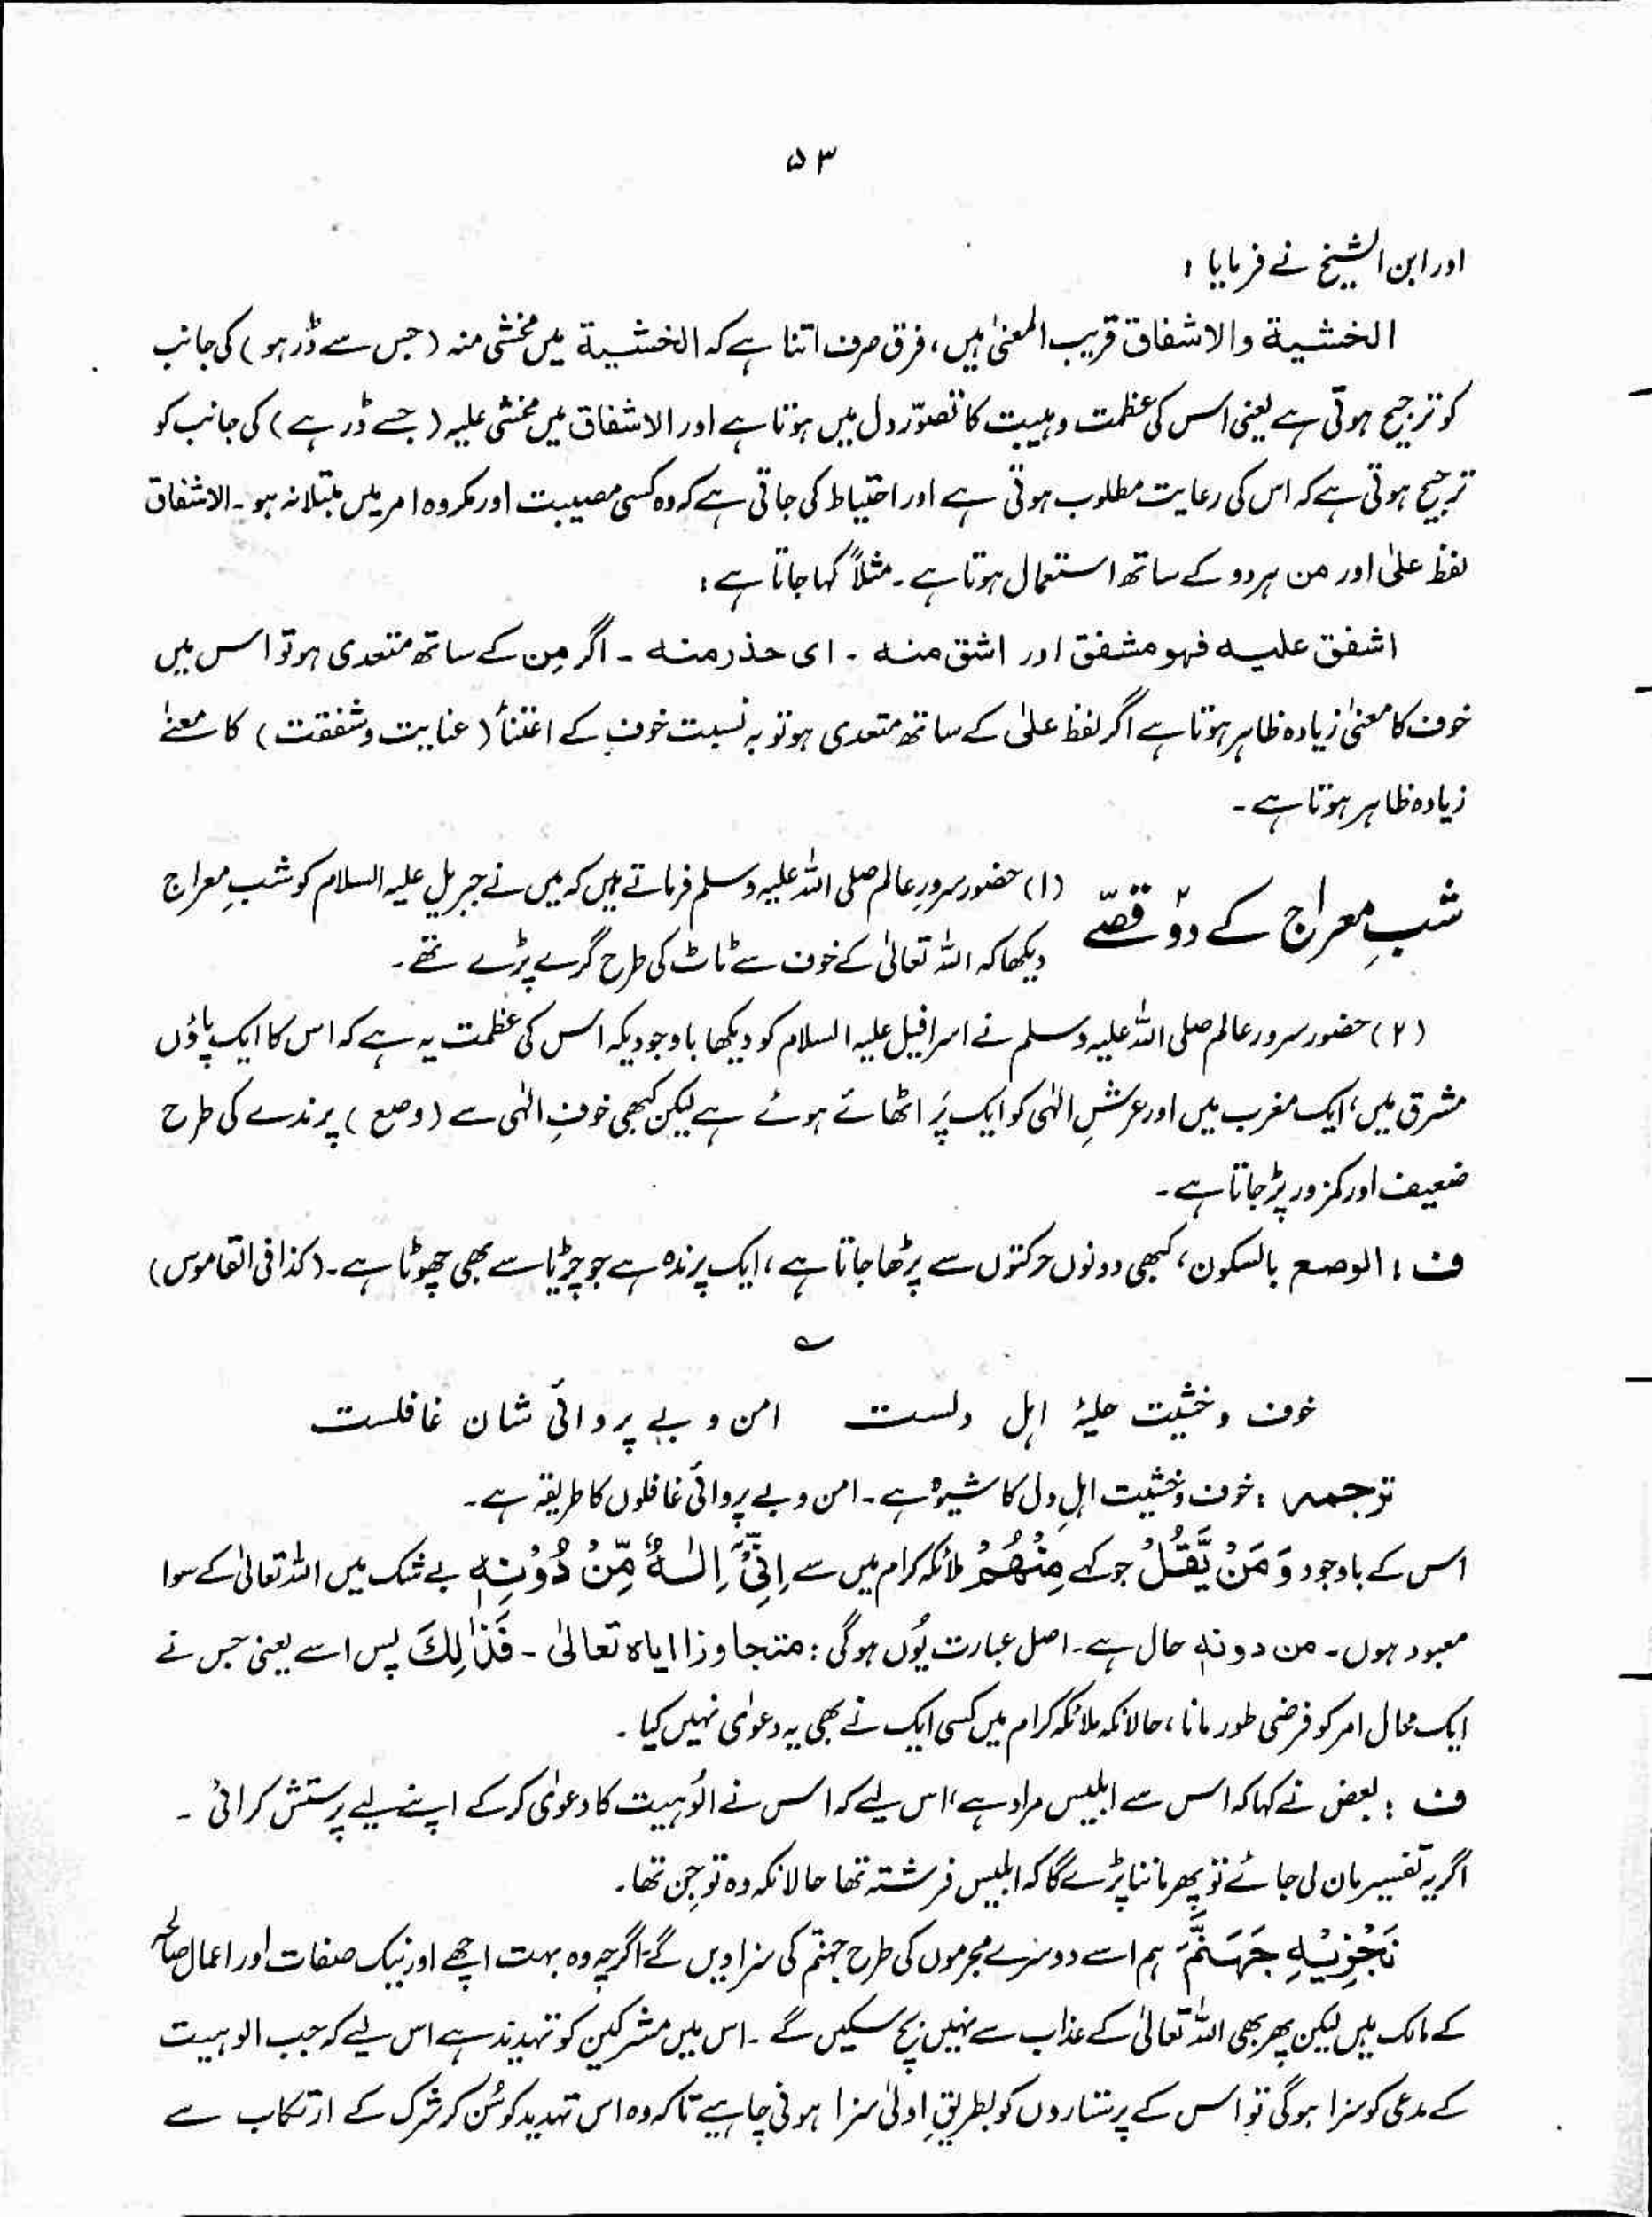 ۵۳
اور ابن الشیخ نے فرمایا :
الخشیة والاشفاق قریب المعنیٰ ہیں، فرق صرف اتنا ہے کہ الخشیة میں مخشی منہ (جس سے ڈر ہو) کی جانب
کو ترجیح ہوتی ہے یعنی اس کی عظمت و ہیبت کا تصوّر دل میں ہوتا ہے اور الاشفاق میں مخشی علیہ (جسے ڈر ہے) کی جانب کو
ترجیح ہوتی ہے کہ اس کی رعایت مطلوب ہوتی ہے اور احتیاط کی جاتی ہے کہ وہ کسی مصیبت اور مکروہ امر میں مبتلا نہ ہو۔ الاشفاق
لفظ علیٰ اور من ہر دو کے ساتھ استعمال ہوتا ہے۔ مثلاً کہا جاتا ہے :
اشفق علیه فهو مشفق اور اشق منه ۔ ای حذر منه ۔ اگر مِن کے ساتھ متعدی ہو تو اس میں
خوف کا معنیٰ زیادہ ظاہر ہوتا ہے اگر لفظ علیٰ کے ساتھ متعدی ہو تو بہ نسبت خوف کے اعتنأ (عنایت و شفقت) کا معنے
زیادہ ظاہر ہوتا ہے۔
شبِ معراج کے دو۲ قصّے
(۱) حضور سرورِ عالم صلی اللہ علیہ وسلم فرماتے ہیں کہ میں نے جبریل علیہ السلام کو شبِ معراج
دیکھا کہ اللہ تعالیٰ کے خوف سے ٹاٹ کی طرح گرے پڑے تھے۔
(۲) حضور سرور عالم صلی اللہ علیہ وسلم نے اسرافیل علیہ السلام کو دیکھا باوجودیکہ اس کی عظمت یہ ہے کہ اس کا ایک پاؤں
مشرق میں، ایک مغرب میں اور عرشِ الٰہی کو ایک پَر اٹھائے ہوئے ہے لیکن کبھی خوفِ الٰہی سے (وصع) پرندے کی طرح
ضعیف اور کمزور پڑ جاتا ہے۔
ف : الوصع بالسکون، کبھی دونوں حرکتوں سے پڑھا جاتا ہے، ایک پرندہ ہے جو چڑیا سے بھی چھوٹا ہے۔ (کذا فی القاموس)
؎
خوف و خشیت حلیۂ اہل دلست امن و بے پروائی شان غافلست
ترجمہ : خوف و خشیت اہلِ دل کا شیوہ ہے۔ امن و بے پروائی غافلوں کا طریقہ ہے۔
اس کے باوجود وَمَنْ يَّقُلْ جو کہے مِنْهُمْ ملائکہ کرام میں سے اِنِّیْٓ اِلٰهٌ مِّنْ دُوْنِهٖ بے شک میں اللہ تعالیٰ کے سوا
معبود ہوں۔ من دونہٖ حال ہے۔ اصل عبارت یُوں ہو گی : متجاوزا ایاہ تعالیٰ ۔ فَذٰلِكَ پس اسے یعنی جس نے
ایک محال امر کو فرضی طور مانا، حالانکہ ملائکہ کرام میں کسی ایک نے بھی یہ دعوٰی نہیں کیا۔
ف : بعض نے کہا کہ اس سے ابلیس مراد ہے، اس لیے کہ اس نے الُوہیت کا دعوٰی کر کے اپنے لیے پرستش کرائی ۔
اگر یہ تفسیر مان لی جائے تو پھر ماننا پڑے گا کہ ابلیس فرشتہ تھا حالانکہ وہ تو جِن تھا۔
نَجْزِیْهِ جَهَنَّمَ ہم اسے دوسرے مجرموں کی طرح جہنّم کی سزا دیں گے اگرچہ وہ بہت اچھے اور نیک صفات اور اعمال صالحہ
کے مالک ہیں لیکن پھر بھی اللہ تعالیٰ کے عذاب سے نہیں بچ سکیں گے ۔ اس میں مشرکین کو تہدید ہے اس لیے کہ جب الوہیت
کے مدعی کو سزا ہو گی تو اس کے پرستاروں کو بطریقِ اولیٰ سزا ہونی چاہیے تاکہ وہ اس تہدید کو سُن کر شرک کے ارتکاب سے